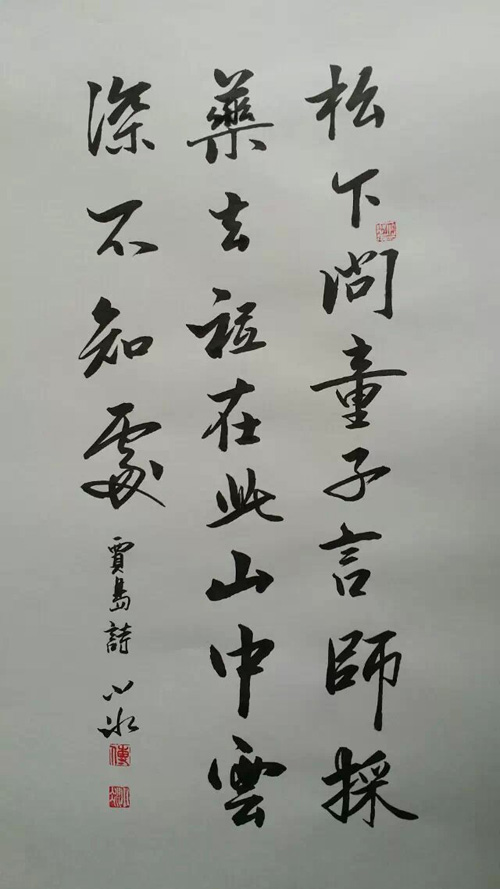 松下問童子言師採
藥去祗在此山中雲
深不知處
賈島詩 小冰